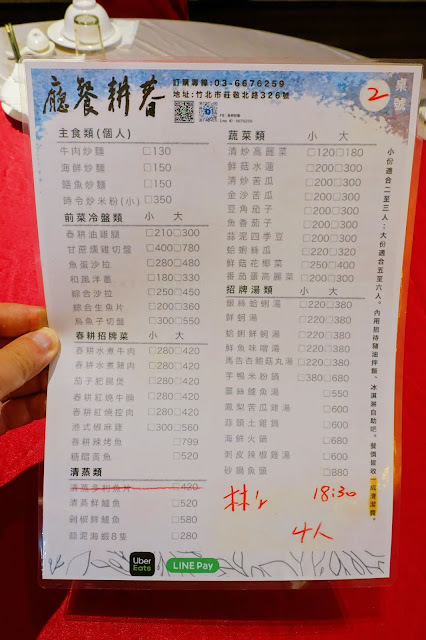 廳餐耕春
訂購專線:03-6676259
地址:竹北市莊敬北路326號
桌號
2
主食類(個人)
牛肉炒麵 □130
海鮮炒麵 □150
鱔魚炒麵 □150
時令炒米粉(小) □350
前菜冷盤類 小 大
春耕油雞腿 □210□300
甘蔗燻雞切盤 □400□780
魚蛋沙拉 □280□480
和風洋蔥 □180□330
綜合沙拉 □250□450
綜合生魚片 □200□360
烏魚子切盤 □300□550
春耕招牌菜 小 大
春耕水煮牛肉 □280□420
春耕水煮豬肉 □280□420
茄子肥腸煲 □280□420
春耕紅燒牛腩 □280□420
春耕紅燒控肉 □280□420
港式椒麻雞 □300□560
春耕辣烤魚 □799
糖醋黃魚 □520
清蒸類
清蒸多利魚片 □420
清蒸鮮鱸魚 □520
剁椒鮮鱸魚 □580
蒜泥海蝦8隻 □280
蔬菜類 小 大
清炒高麗菜 □120□180
鮮菇水蓮 □200□300
清炒苦瓜 □200□300
金沙苦瓜 □200□300
豆角茄子 □200□300
魚香茄子 □200□300
蒜泥四季豆 □200□300
蛤蜊絲瓜 □220□320
鮮菇花椰菜 □250□400
番茄蛋高麗菜 □200□300
招牌湯類 小 大
銀絲蛤蜊湯 □220□380
鮮蚵湯 □220□380
蛤蜊鮮蚵湯 □220□380
鮮魚味噌湯 □220□380
馬告杏鮑菇丸湯 □220□380
芋鴨米粉鍋 □380□680
薑絲鱸魚湯 □550
鳳梨苦瓜雞湯 □600
蒜頭土雞鍋 □600
海鮮火鍋 □680
剝皮辣椒雞湯 □600
砂鍋魚頭 □880
小份適合二至三人;大份適合五至六人。內用招待豬油拌飯、冰淇淋自助吧。餐價皆收一成清潔費。
林'r 18:30
4人
Uber
Eats
LINE Pay